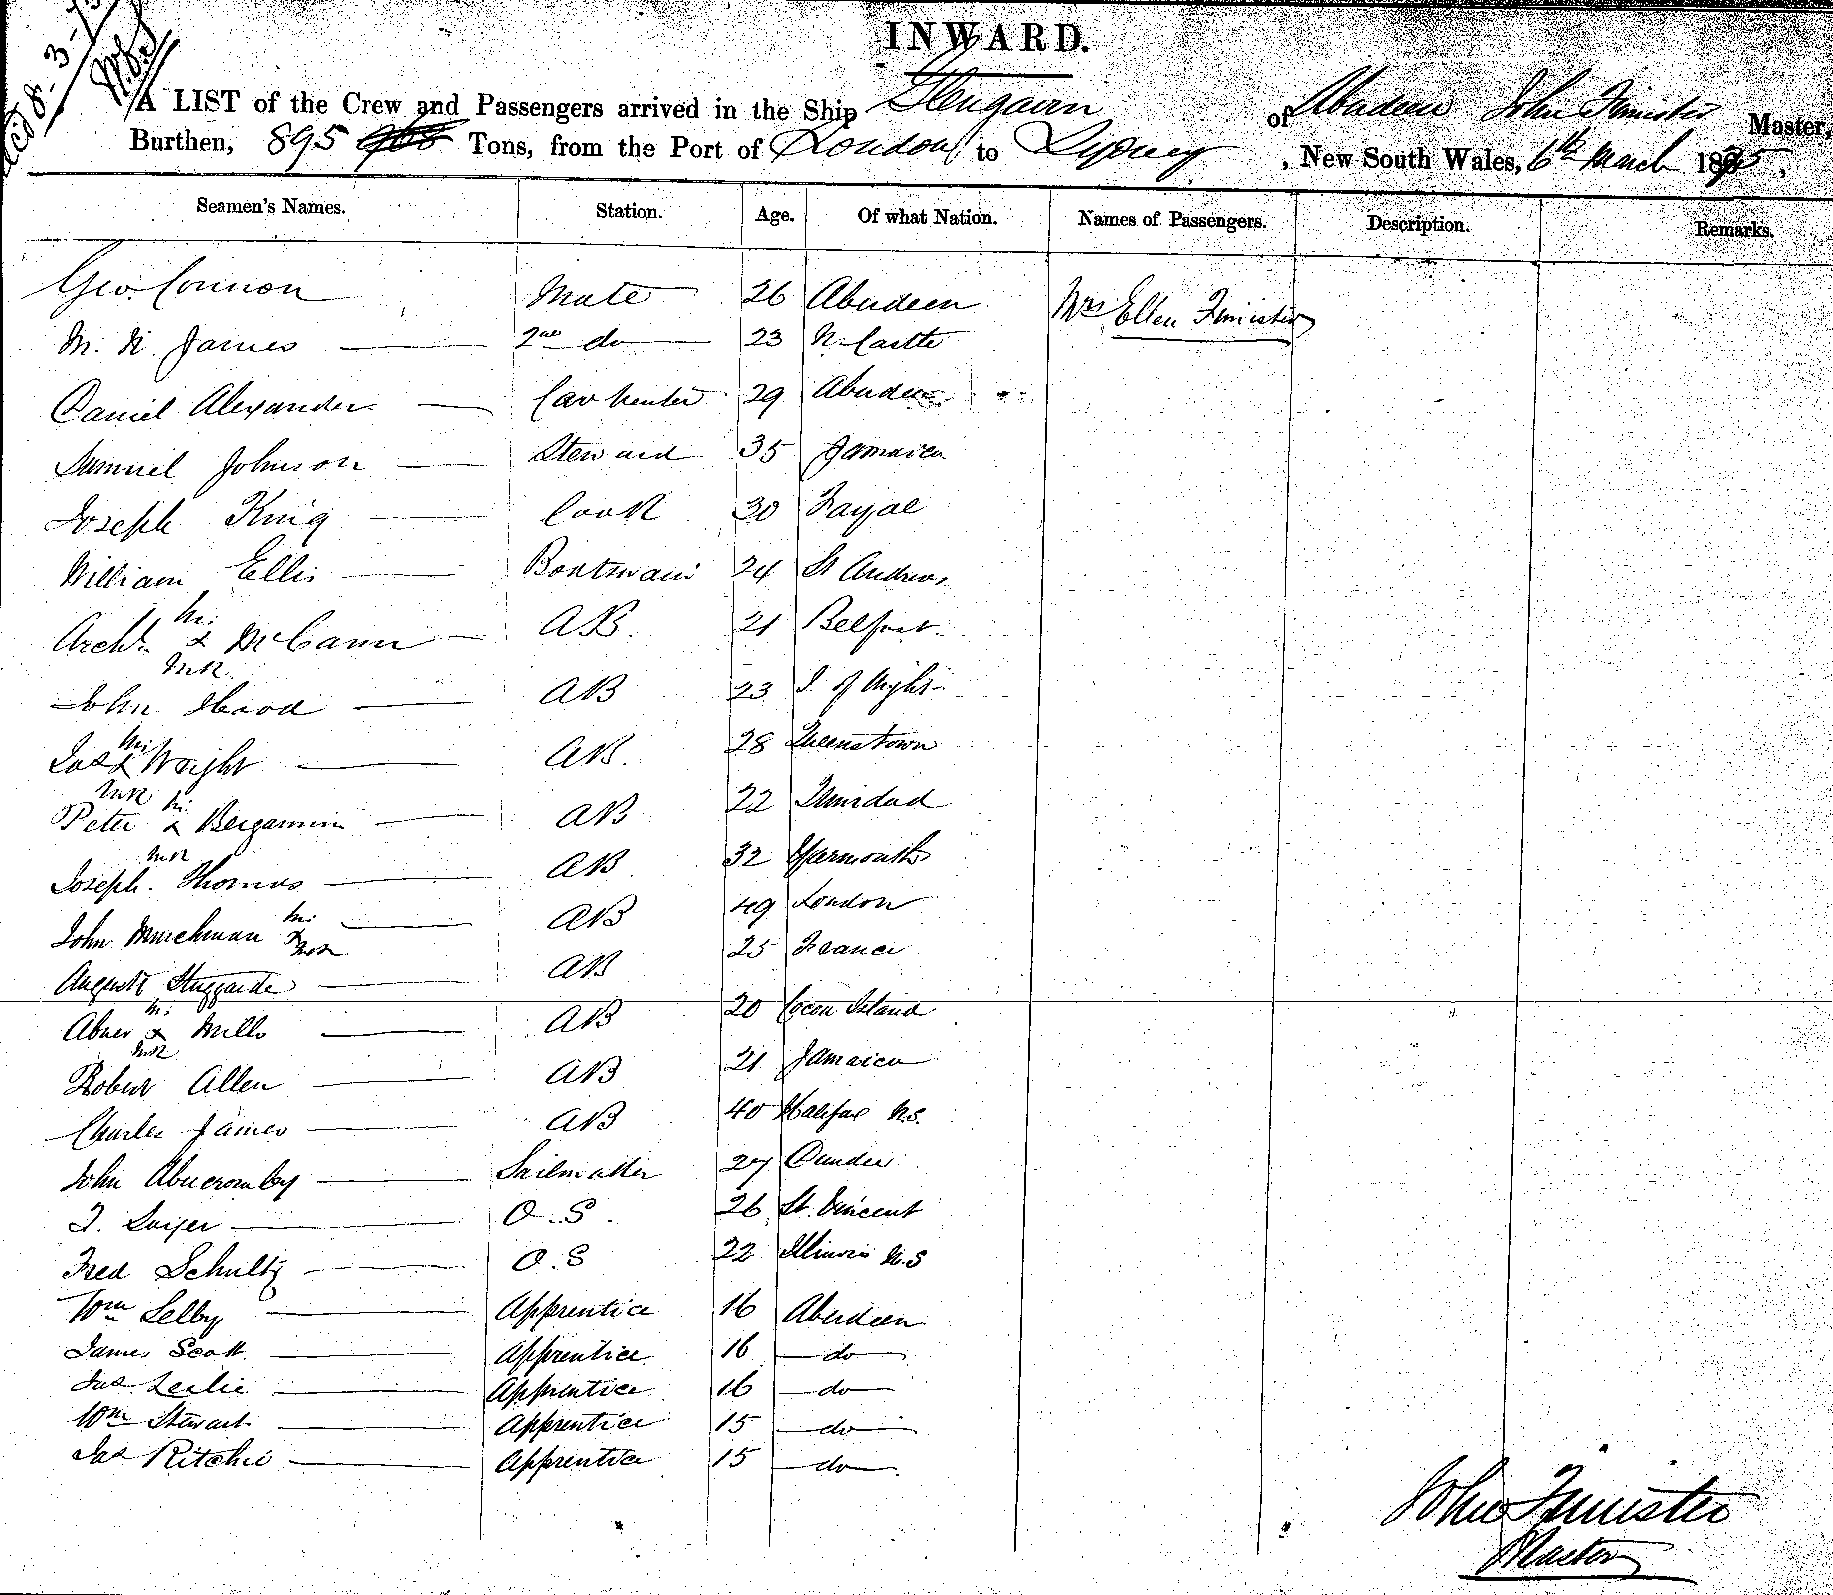 INWARD.
A LIST of the Crew and Passengers arrived in the Ship of Aberdeen John Finister Master,
Burthen, 895 Tons, from the Port of London to Sydney, New South Wales, 6th March 1875.
Seamen's Names. Station. Age. Of what Nation. Names of Passengers. Description. Remarks.
Geo. Connon Mate 26 Aberdeen Mrs Ellen Finister
M. N. James 2nd do 23 N. Castle
Daniel Alexander Carpenter 29 Aberdeen
Samuel Johnson Steward 35 Jamaica
Joseph King Cook 30 Fayal
William Ellis Boatswain 24 St Andrews
his
Archd. x McCann AB. 21 Belfast.
mk
John Hood AB 23 I. of Wight
his
Jas x Wright AB. 28 Queenstown
mk his
Peter x Bergamin AB 22 Trinidad
mk
Joseph. Thomas AB 32 Yarmouth
his
John Murchman x AB 49 London
mk
August AB 25 France
his
Abner x Mills AB 20 Cocoa Island
mk
Robert Allen AB 21 Jamaica
Charles James AB 40 Halifax N.S.
John Abercromby Sailmaker 27 Dundee
O.S. 26 St. Vincent
Fred Schultz O.S 22 Illinois U.S
Wm Selby Apprentice 16 Aberdeen
James Scott Apprentice 16 do
Jas Leslie Apprentice 16 do
Wm Stewart Apprentice 15 do
Jas Ritchie Apprentice 15 do
John Finister
Master